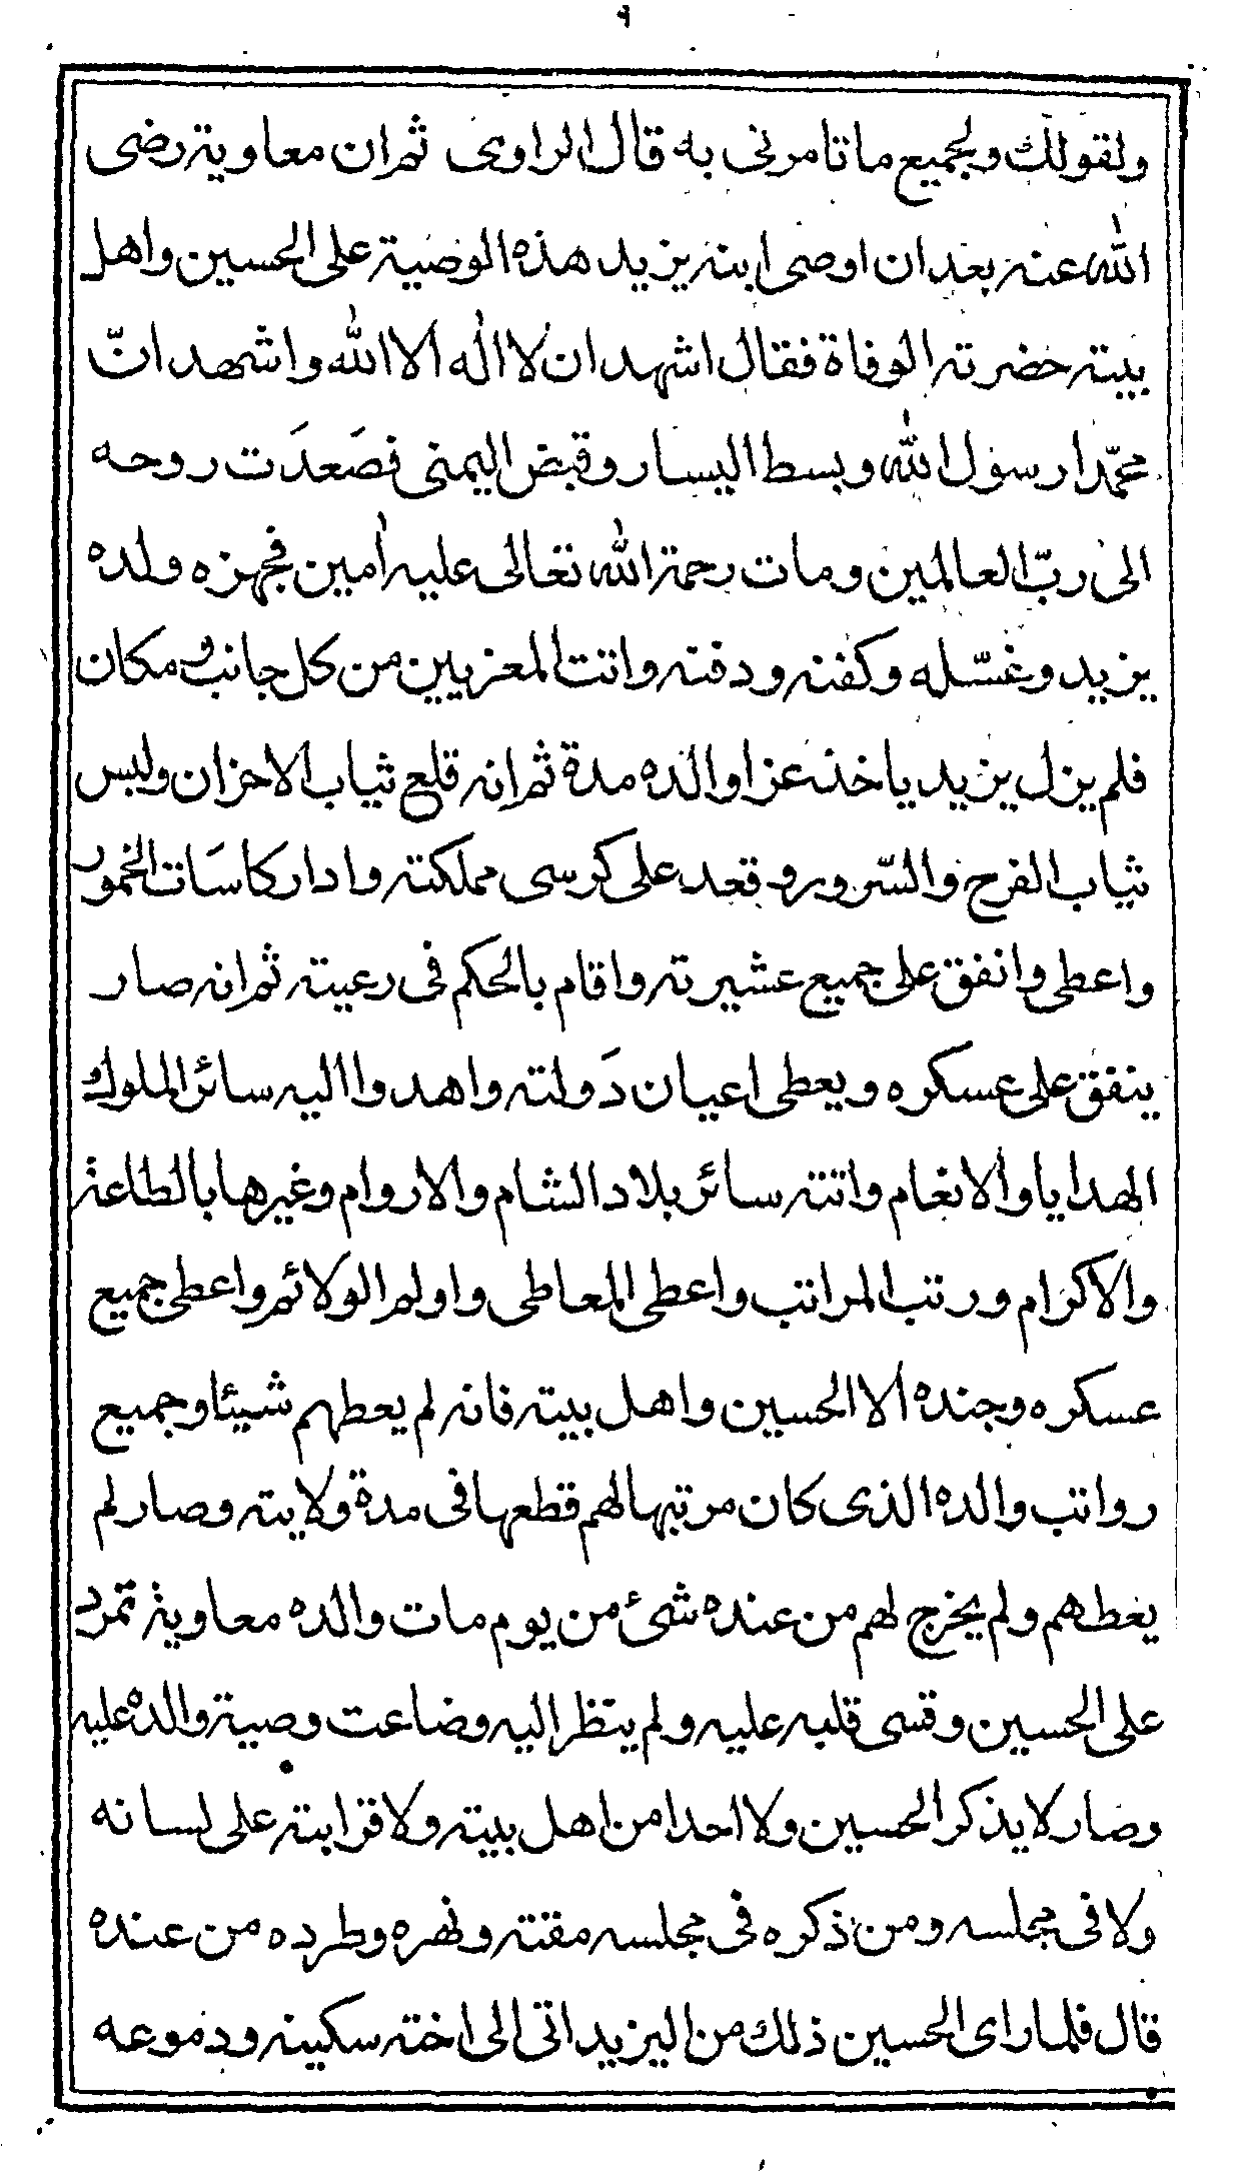 ٩
ولقولك ولجميع ما تامرنى به قال الراوى ثم ان معاوية رضى
الله عنه بعد ان اوصى ابنه يزيد هذه الوصية على الحسين واهل
بيته حضرته الوفاة فقال اشهد ان لا اله الا الله واشهد انّ
محمّدا رسول الله وبسط اليسار وقبض اليمنى فصَعدَت روحه
الى ربّ العالمين ومات رحمة الله تعالى عليه اٰمين فجهزه ولده
يزيد وغسّله وكفنه ودفنه واتت المعزيين من كل جانب ومكان
فلم يزل يزيد ياخذ عزا والده مدة ثم انه قلع ثياب الاحزان ولبس
ثياب الفرح والسّرور وقعد على كرسى مملكته وادار كاسَات الخمور
واعطى وانفق على جميع عشيرته واقام بالحكم فى رعيته ثم انه صار
ينفق على عسكره ويعطى اعيان دَولته واهدوا اليه سائر الملوك
الهدايا والانعام واتته سائر بلاد الشام والاروام وغيرها بالطاعة
والاكرام ورتب المراتب واعطى المعاطى واولم الولائم واعطى جميع
عسكره وجنده الا الحسين واهل بيته فانه لم يعطهم شيئا وجميع
رواتب والده الذى كان مرتبها لهم قطعها فى مدة ولايته وصار لم
يعطهم ولم يخرج لهم من عنده شئ من يوم مات والده معاوية تمرد
على الحسين وقسى قلبه عليه ولم ينظر اليه وضاعت وصية والده عليه
وصار لا يذكر الحسين ولا احدا من اهل بيته ولا قرابته على لسانه
ولا فى مجلسه ومن ذكره فى مجلسه مقته ونهره وطرده من عنده
قال فلما راى الحسين ذلك من اليزيد اتى الى اخته سكينه ودموعه